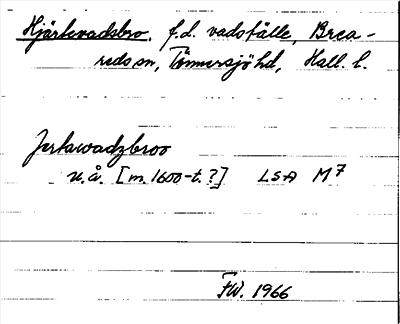 Hjärtevadsbro, f.d. vadställe, Brea-
reds sn, Tönnersjö hd, Hall. l.
Jertawadzbroo
u.å. [m. 1600-t.?] LSA M7
FW. 1966